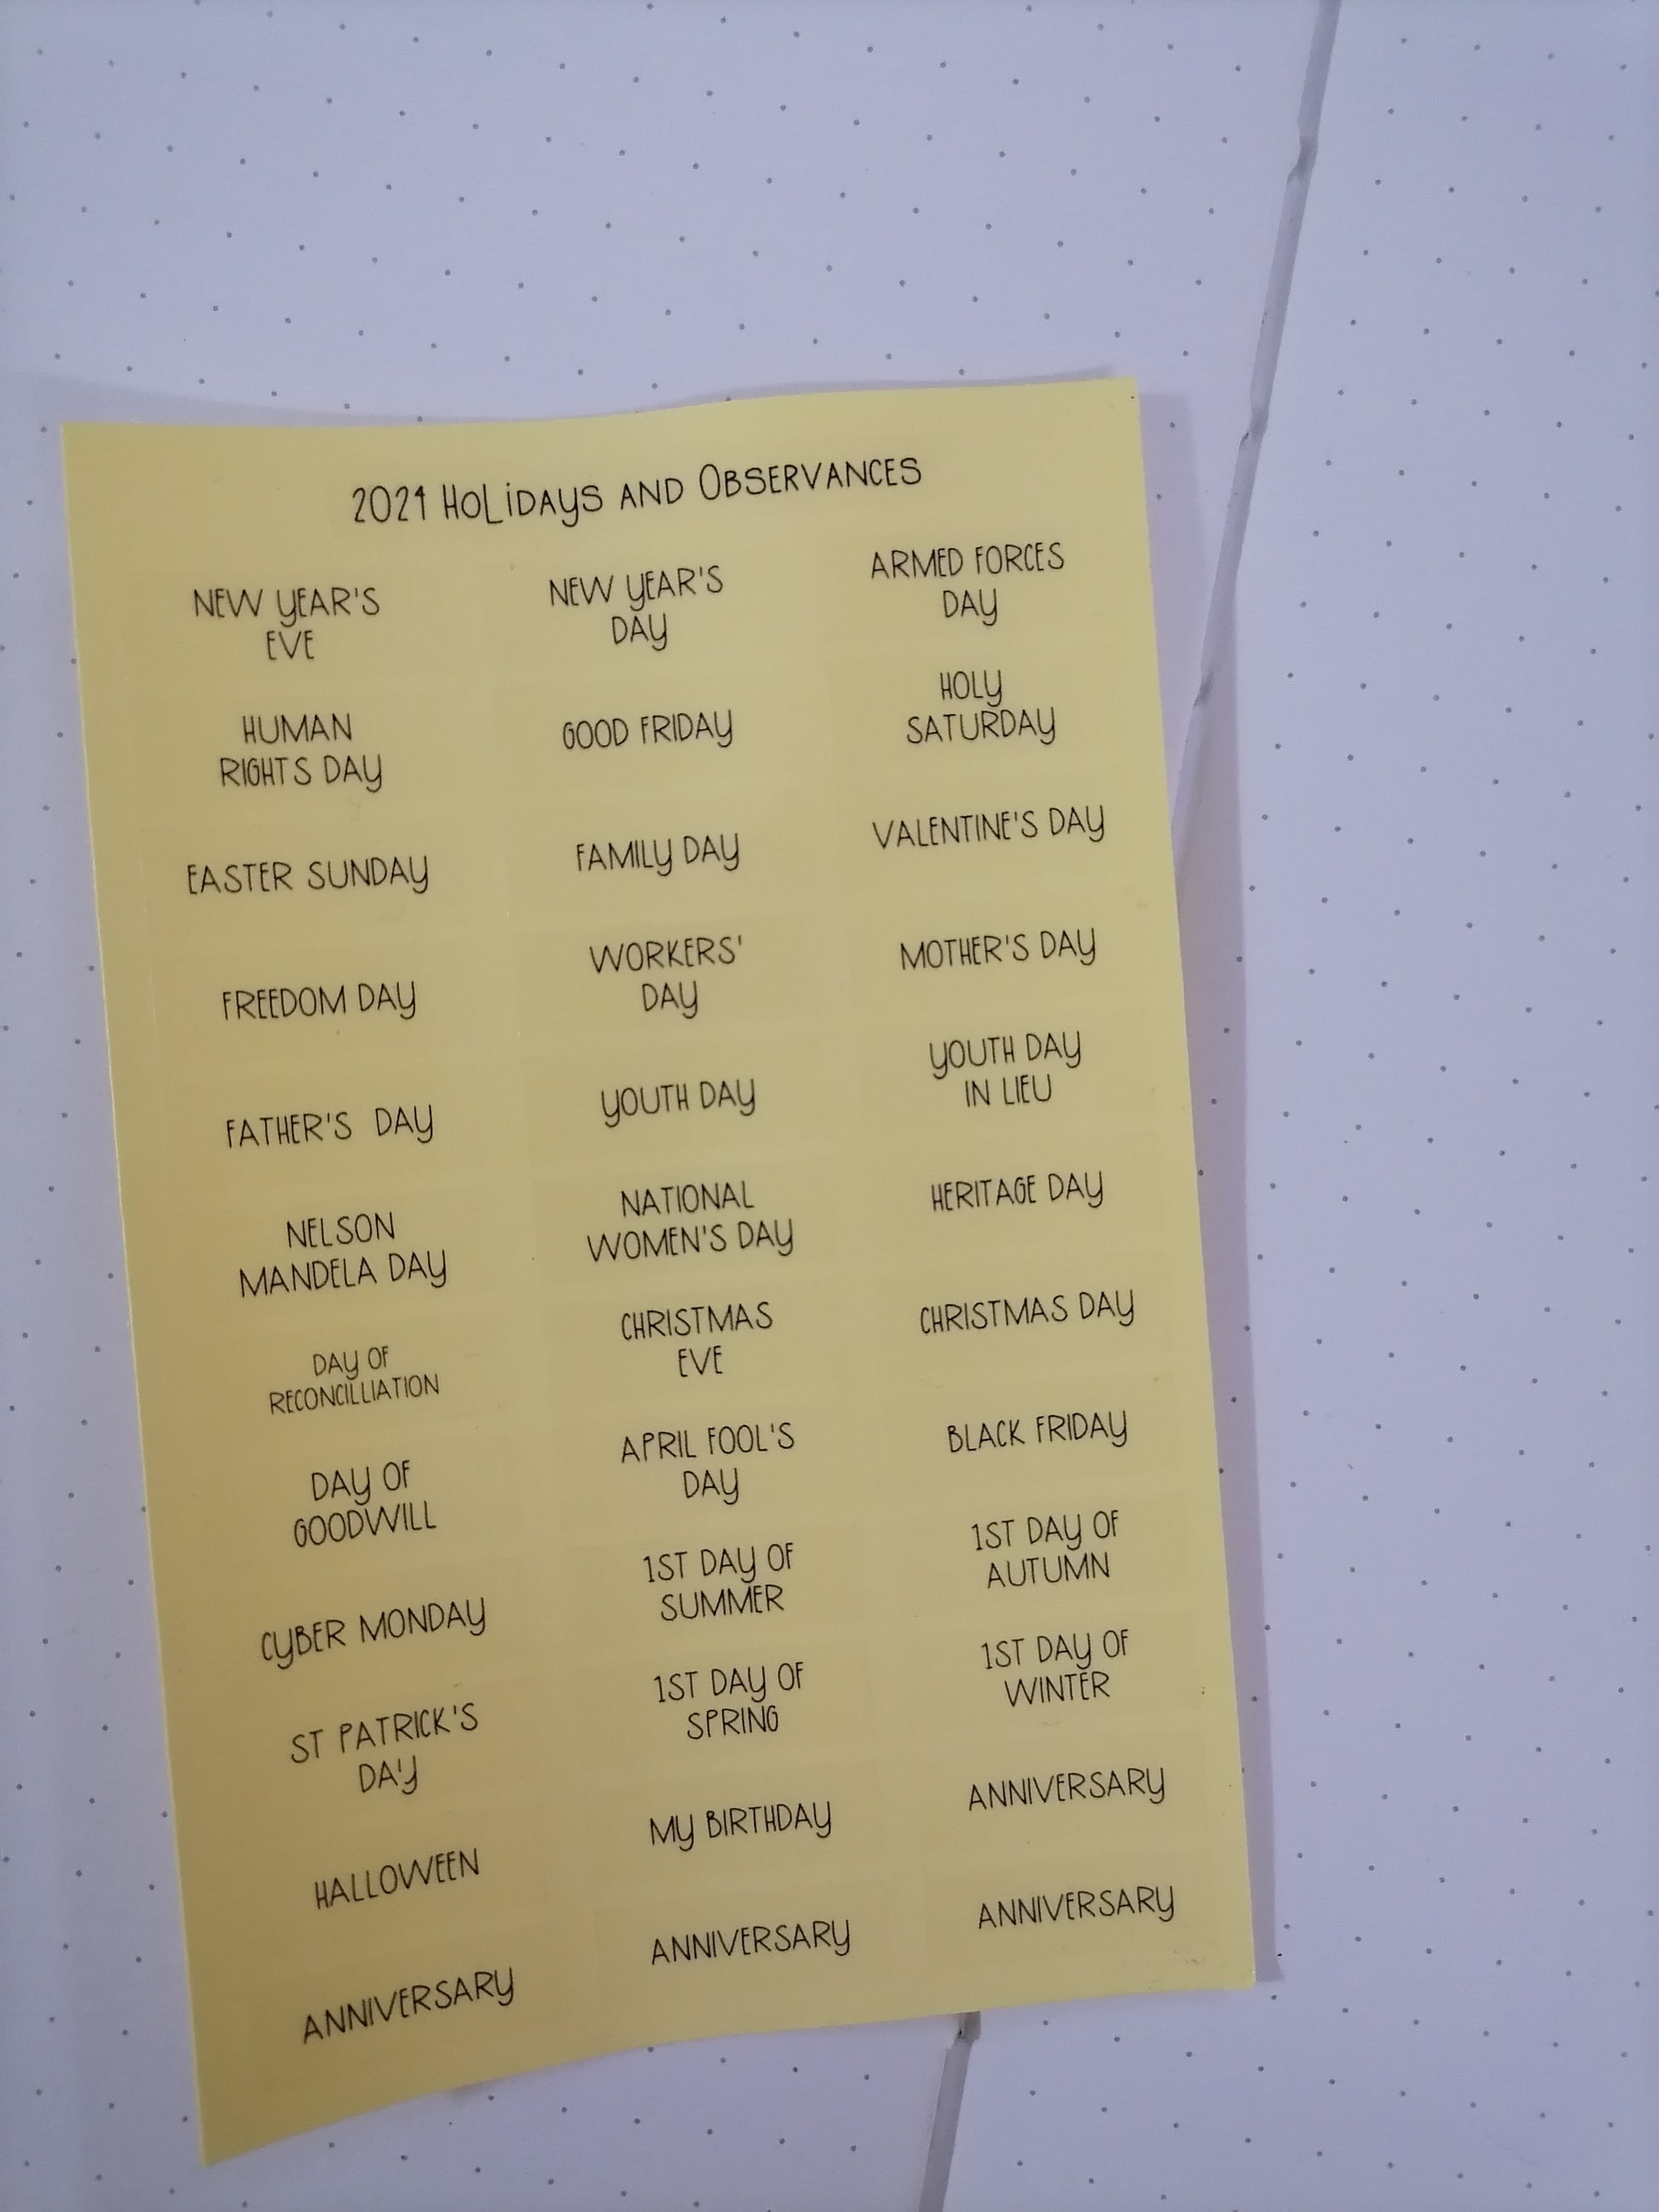 2021 HOLIDAYS AND OBSERVANCES
NEW YEAR'S
EVE
NEW YEAR'S
DAY
ARMED FORCES
DAY
HUMAN
RIGHTS DAY
GOOD FRIDAY
HOLY
SATURDAY
EASTER SUNDAY
FAMILY DAY
VALENTINE'S DAY
FREEDOM DAY
WORKERS'
DAY
MOTHER'S DAY
FATHER'S DAY
YOUTH DAY
YOUTH DAY
IN LIEU
NELSON
MANDELA DAY
NATIONAL
WOMEN'S DAY
HERITAGE DAY
DAY OF
RECONCILLIATION
CHRISTMAS
EVE
CHRISTMAS DAY
DAY OF
GOODWILL
APRIL FOOL'S
DAY
BLACK FRIDAY
CYBER MONDAY
1ST DAY OF
SUMMER
1ST DAY OF
AUTUMN
ST PATRICK'S
DAY
1ST DAY OF
SPRING
1ST DAY OF
WINTER
HALLOWEEN
MY BIRTHDAY
ANNIVERSARY
ANNIVERSARY
ANNIVERSARY
ANNIVERSARY